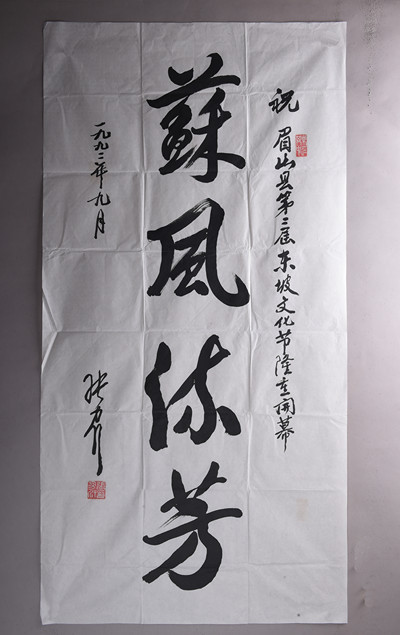 祝
眉山县第三届东坡文化节隆重開幕
蘇風流芳
一九九二年九月